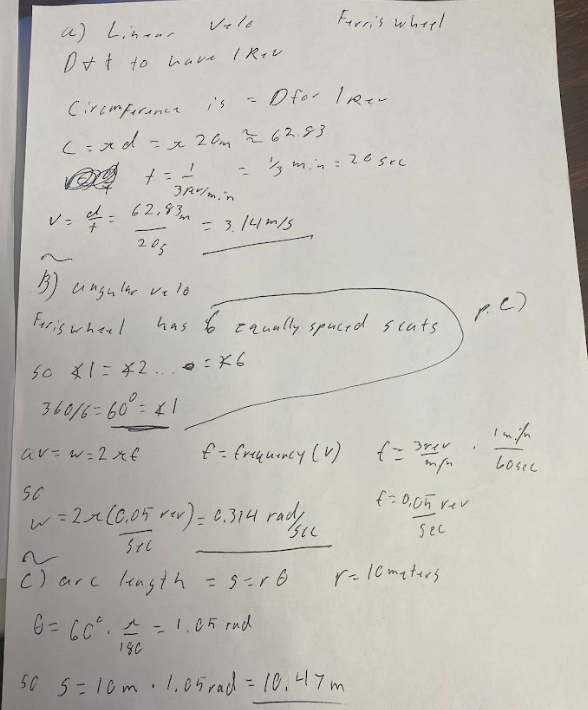 a) Linear Velo Ferris wheel
D & t to have 1 Rev
Circumference is = D for 1 Rev
C = πd = π 20m ≈ 62.83
t = 1/3rev/min = 1/3 min = 20 sec
v = d/t = 62.83m/20s = 3.14 m/s
B) angular velo
Ferris wheel has 6 equally spaced seats p. C)
so ∡1 = ∡2 ... = ∡6
360/6 = 60° = ∡1
av = w = 2πf f = frequency (v) f = 3rev/min · 1 min/60sec
so f = 0.05 rev/sec
w = 2π(0.05 rev/sec) = 0.314 rad/sec
C) arc length = s = rθ r = 10 meters
θ = 60° · π/180 = 1.05 rad
so s = 10m · 1.05 rad = 10.47 m